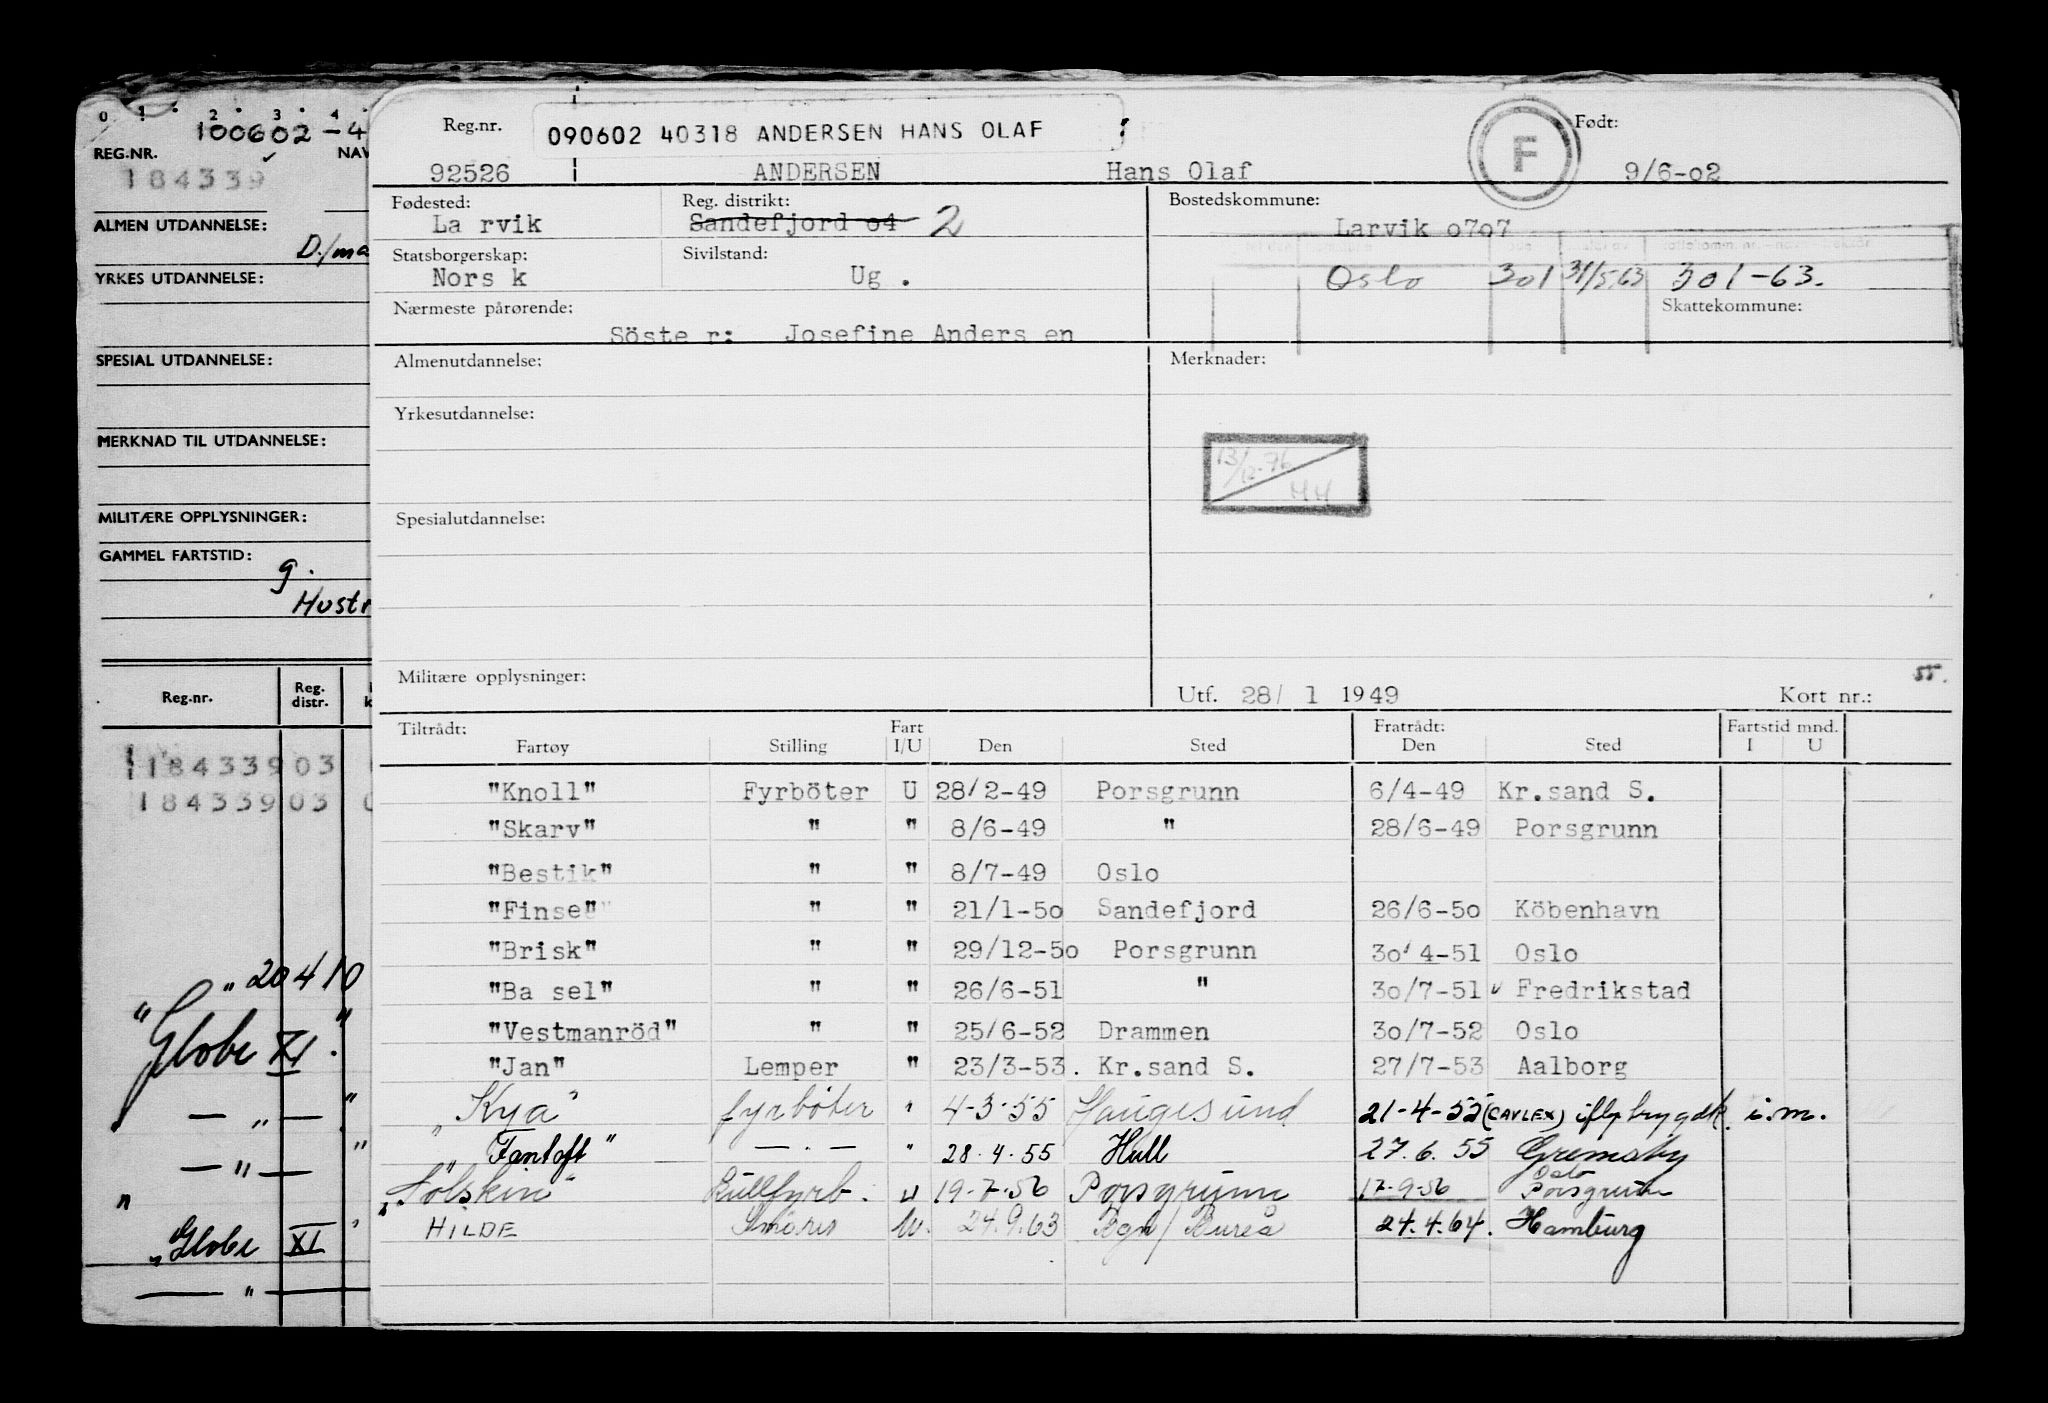 0 1 2 3 4
100602-4
REG.NR. NAV
184339
ALMEN UTDANNELSE:
D./ma
YRKES UTDANNELSE:
SPESIAL UTDANNELSE:
MERKNAD TIL UTDANNELSE:
MILITÆRE OPPLYSNINGER:
GAMMEL FARTSTID:
g.
Hustr
Reg.nr. Reg. distr. k
118433903
18433903
" 20410
"Globe XI."
— " — "
— " — "
"
"Globe XI "
— " —
Reg.nr. 090602 40318 ANDERSEN HANS OLAF F Født:
92526 ANDERSEN Hans Olaf 9/6-02
Fødested: Reg. distrikt: Bostedskommune:
La rvik Sandefjord o4 2 Larvik o7o7
Statsborgerskap: Sivilstand:
Nors k Ug . Oslo 301 31/5.63 301-63.
Nærmeste pårørende: Skattekommune:
Söste r: Josefine Anders en
Almenutdannelse: Merknader:
Yrkesutdannelse:
13/12-76
HH
Spesialutdannelse:
Militære opplysninger: 55.
Utf. 28/ 1 1949 Kort nr.:
Tiltrådt: Fart Fratrådt: Fartstid mnd.
Fartøy Stilling I/U Den Sted Den Sted I U
"Knoll" Fyrböter U 28/2-49 Porsgrunn 6/4-49 Kr.sand S.
"Skarv" " " 8/6-49 " 28/6-49 Porsgrunn
"Bestik" " " 8/7-49 Oslo
"Finse" " " 21/1-5o Sandefjord 26/6-5o Köbenhavn
"Brisk" " " 29/12-5o Porsgrunn 3o/4-51 Oslo
"Ba sel" " " 26/6-51 " 3o/7-51 Fredrikstad
"Vestmanröd" " " 25/6-52 Drammen 3o/7-52 Oslo
"Jan" Lemper " 23/3-53. Kr.sand S. 27/7-53 Aalborg
"Kya" fyrböter " 4-3-55 Haugesund 21-4-55 (CAVLEX) i.m.
"Fantoft" — . — " 28.4.55 Hull 27.6.55 Grimsby
"Solskin" Kullfyrb. U 19-7-56 Porsgrunn 17-9-56 Oslo Porsgrunn
HILDE Smöres U. 24.9.63 24.4.64. Hamburg